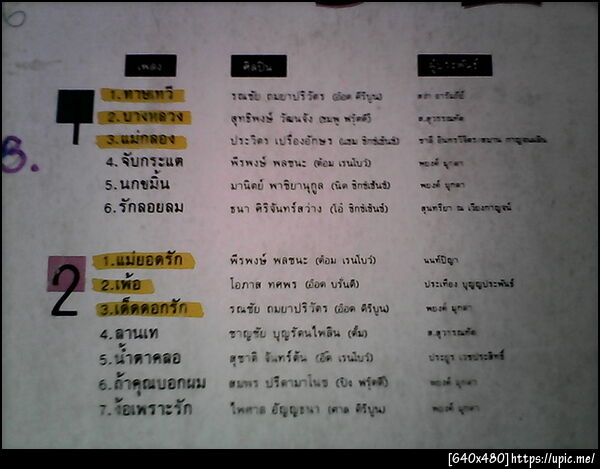 เพลง ศิลปิน ผู้ประพันธ์
1
1.ทาษเทวี รณชัย ถมยาปริวัตร (อ๊อด คีรีบูน) สง่า อารัมภีร์
2.บางหลวง สุทธิพงษ์ วัฒนจัง (ชมพู ฟรุ๊ตตี้) ส.สุวรรณทัต
3.แม่กลอง ประวิตร เปรื่องอักษร (แซม ซิกซ์เซ้นซ์) ชาลี อินทรวิจิตร/สมาน กาญจนผลิน
4.จับกระแต พีรพงษ์ พลชนะ (ต้อม เรนโบว์) พยงค์ มุกดา
5.นกขมิ้น มานิตย์ พาชิยานุกูล (นิต ซิกซ์เซ้นซ์) พยงค์ มุกดา
6.รักลอยลม ธนา ศิริจันทร์สว่าง (โอ๋ ซิกซ์เซ้นซ์) สุนทรียา ณ เวียงกาญจน์
2
1.แม่ยอดรัก พีรพงษ์ พลชนะ (ต้อม เรนโบว์) นนท์ปัญา
2.เพ้อ โอภาส ทศพร (อ๊อด บรั่นดี) ประเทือง บุญญประพันธ์
3.เด็ดดอกรัก รณชัย ถมยาปริวัตร (อ๊อด คีรีบูน) พยงค์ มุกดา
4.ลานเท ชาญชัย บุญรัตนไพลิน (ตั้ม) ส.สุวรรณทัต
5.น้ำตาคลอ สุชาติ จันทร์ต้น (อ๊๊ด เรนโบว์) ประยูร เวชประสิทธิ์
6.ถ้าคุณบอกผม สมพร ปรีดามาโนช (ปิง ฟรุ๊ตตี้) พยงค์ มุกดา
7.ง้อเพราะรัก ไพศาล อัญญธนา (ศาล คีรีบูน) พยงค์ มุกดา
[640x480]https://upic.me/